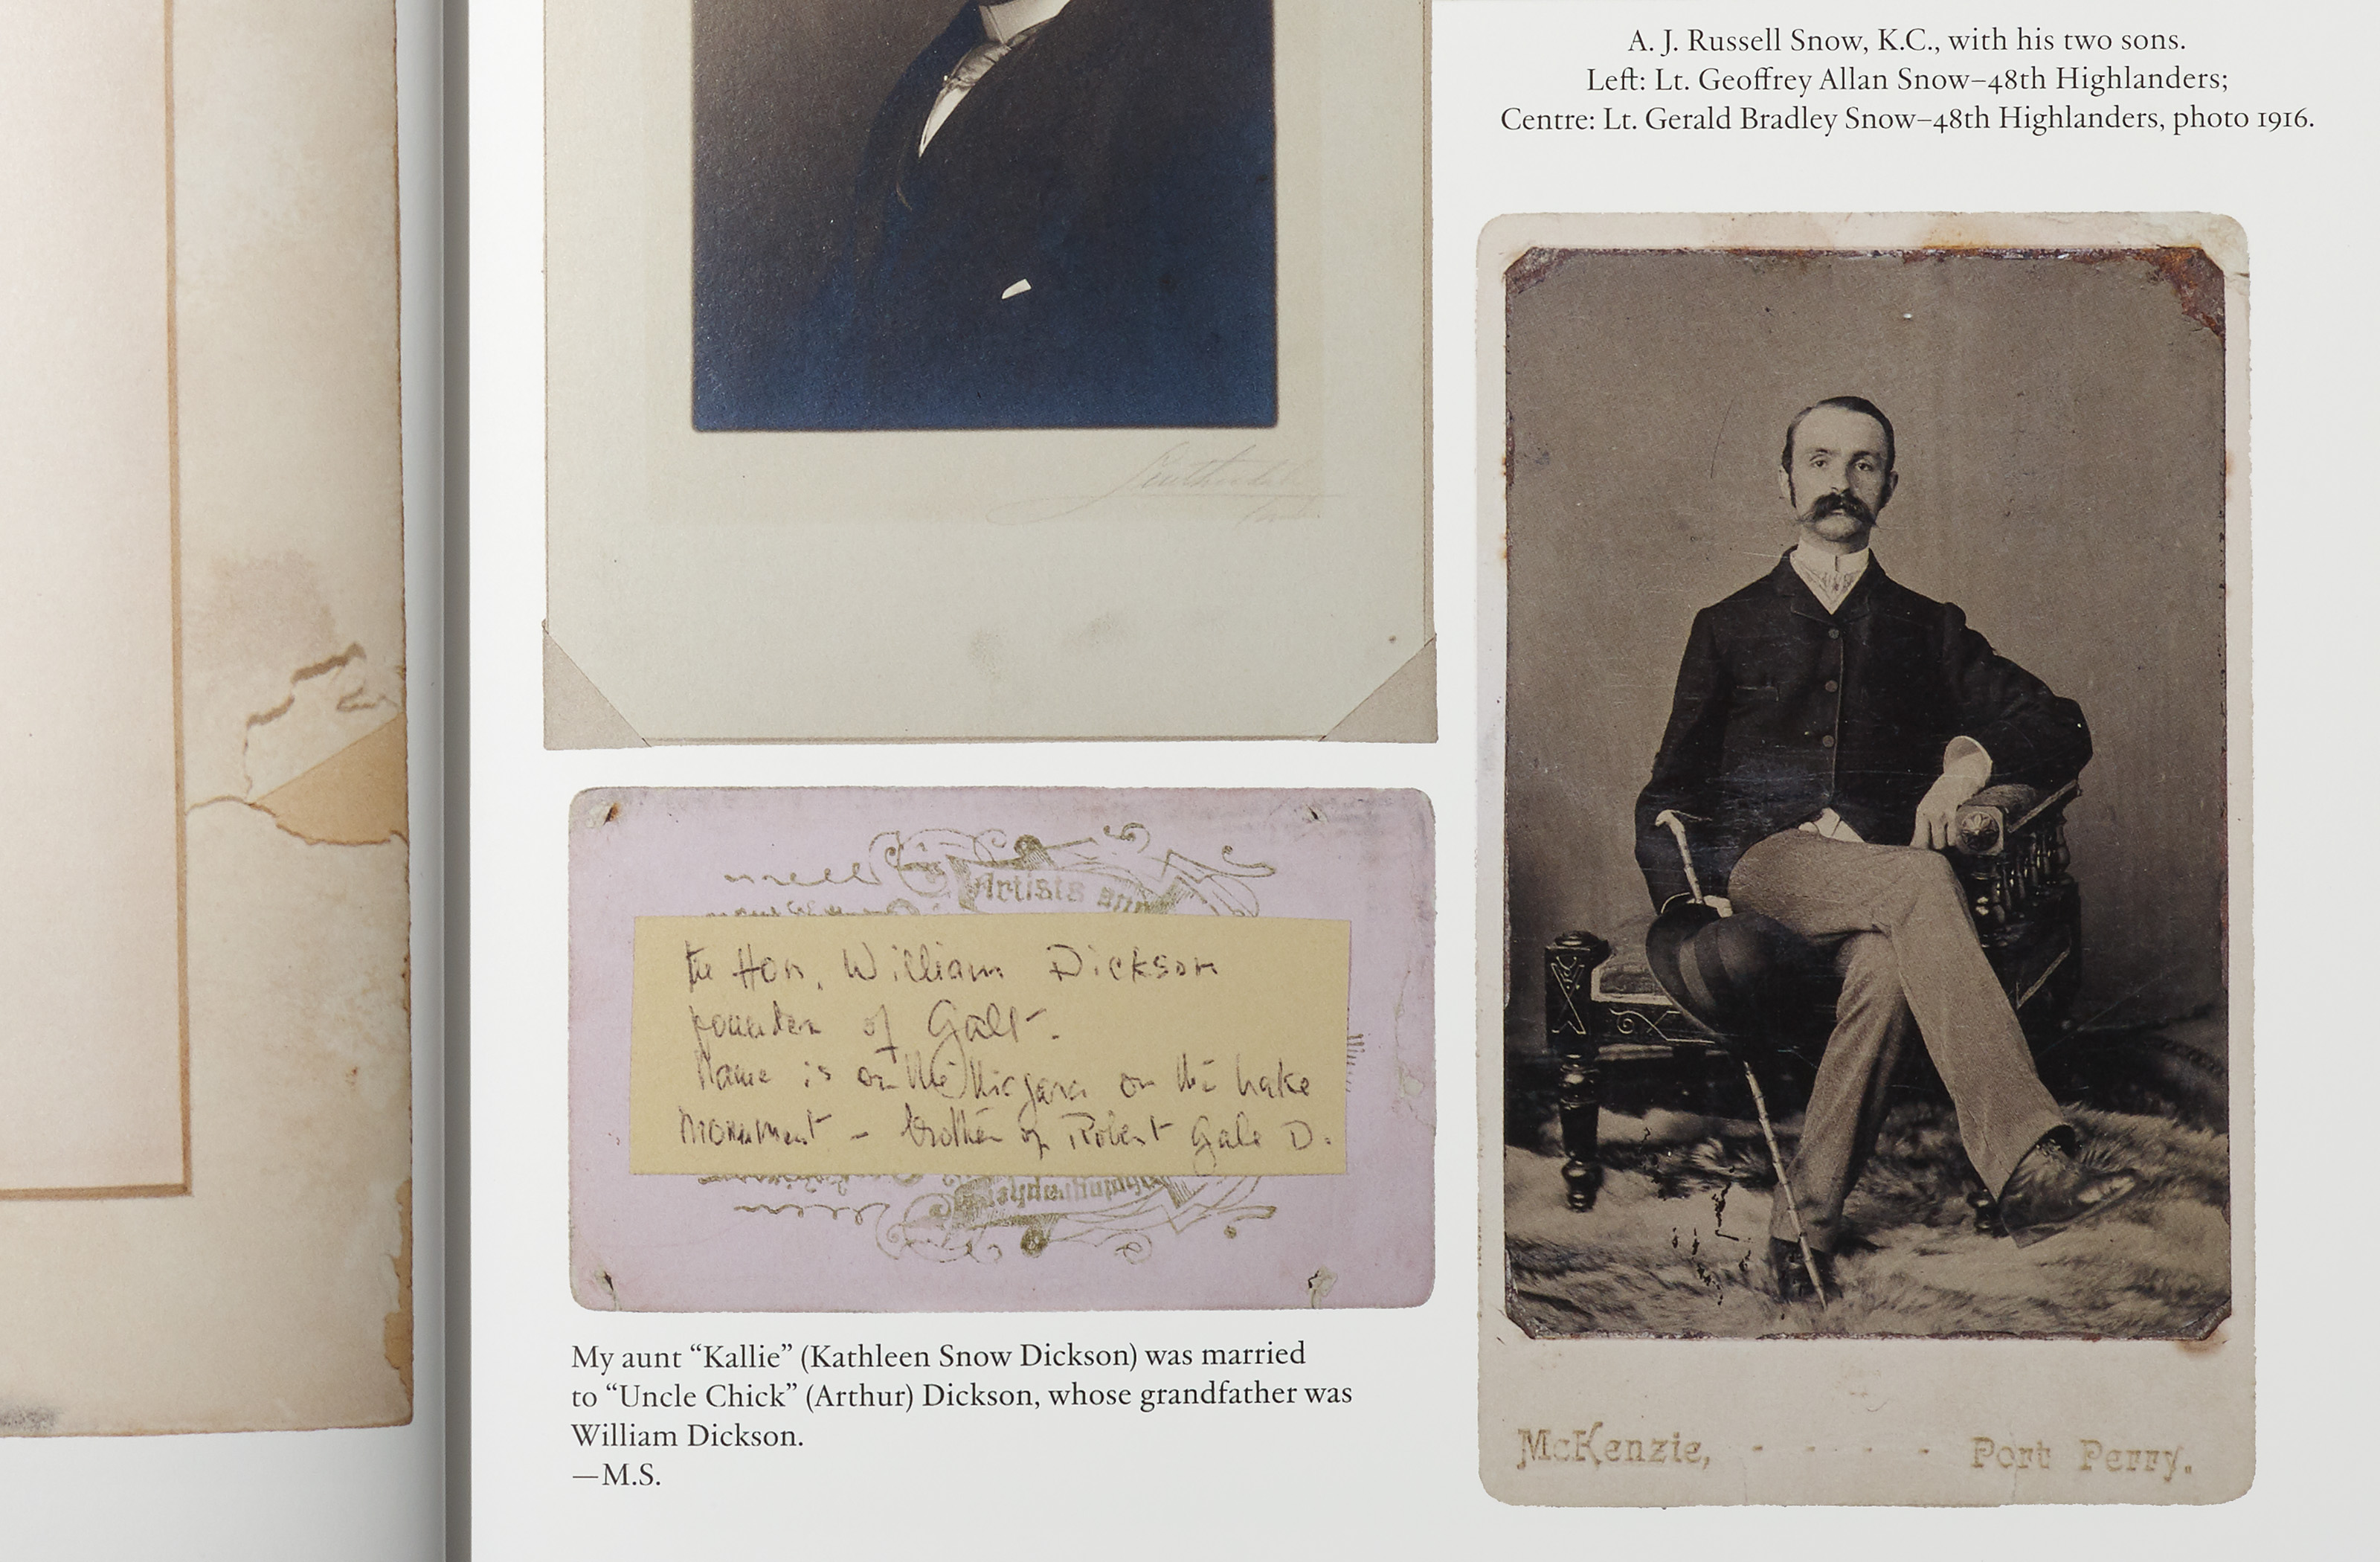 A. J. Russell Snow, K.C., with his two sons.
Left: Lt. Geoffrey Allan Snow–48th Highlanders;
Centre: Lt. Gerald Bradley Snow–48th Highlanders, photo 1916.
Artists and
the Hon. William Dickson
founder of Galt.
Name is on the Niagara on the Lake
Monument – brother of Robert Gale D.
My aunt “Kallie” (Kathleen Snow Dickson) was married
to “Uncle Chick” (Arthur) Dickson, whose grandfather was
William Dickson.
—M.S.
McKenzie, - - - - - Port Perry.